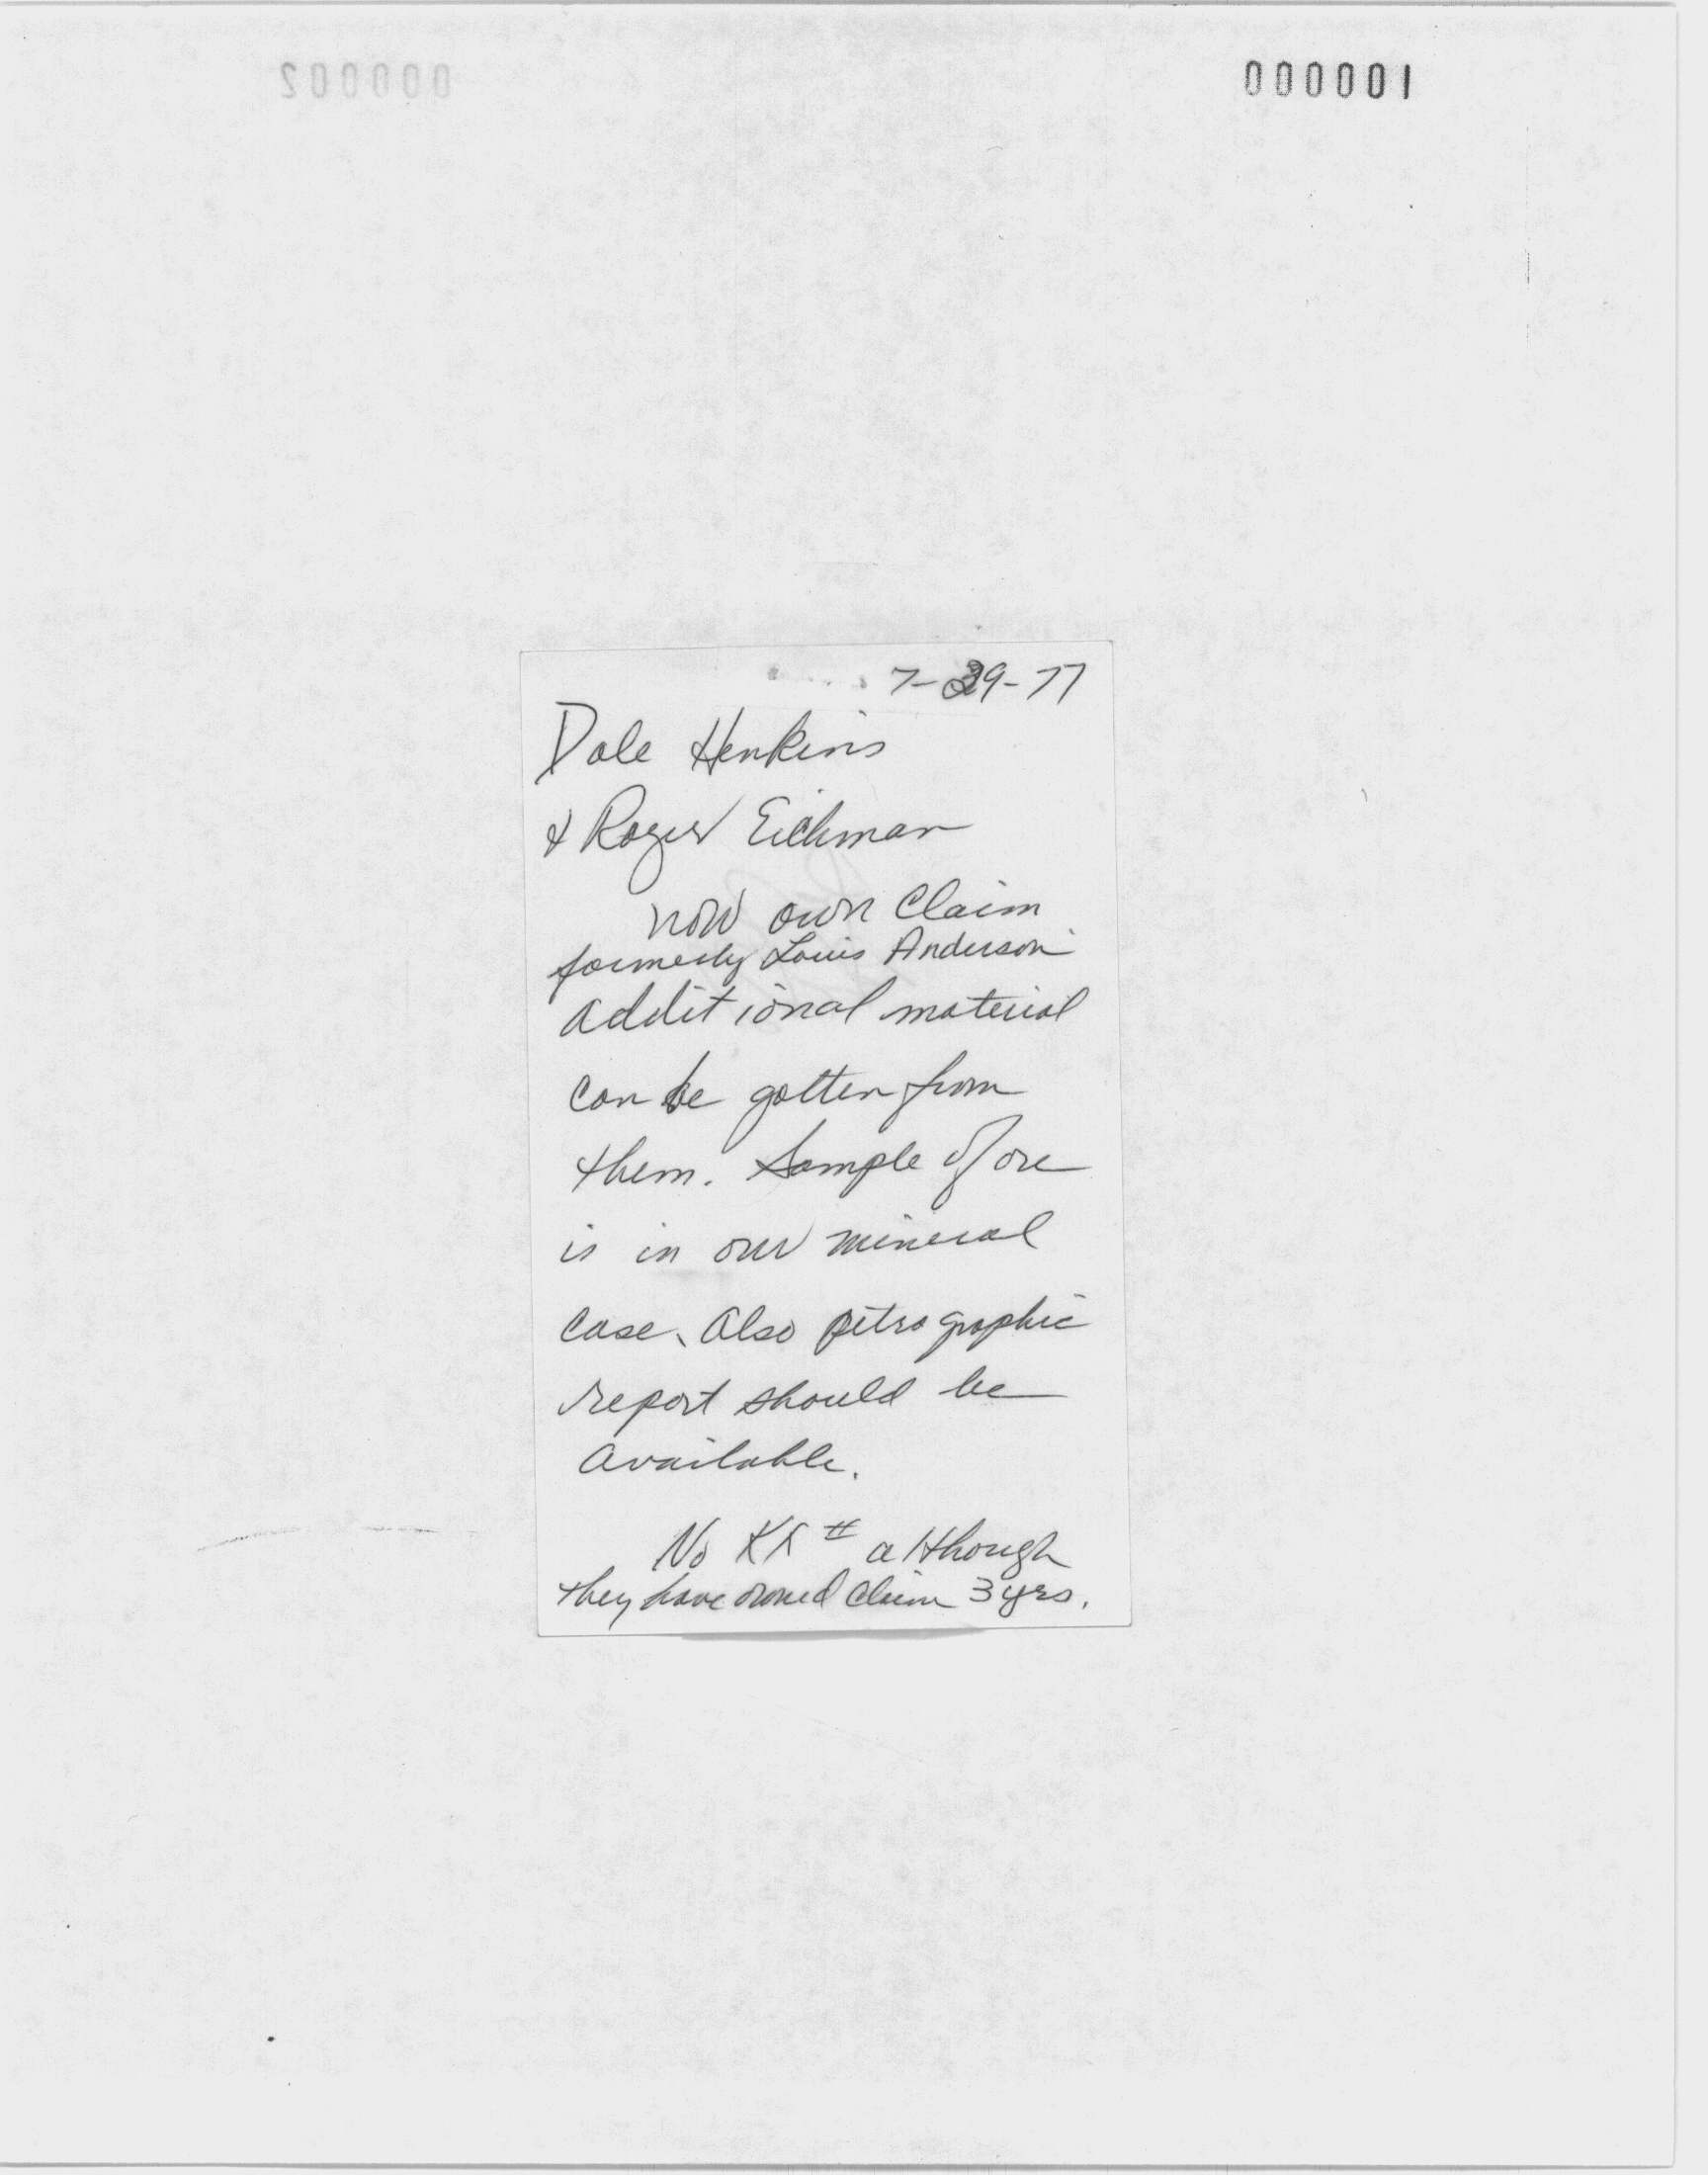 000001
7-29-77
Dale Henkins
& Roger Eichman
now own Claim
formerly Louis Anderson
additional material
can be gotten from
them. Sample of ore
is in our mineral
case. Also petrographic
report should be
available.
No KX # although
they have owned claim 3 yrs.